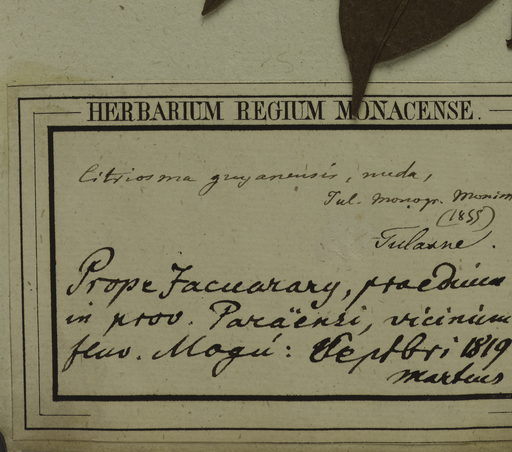 HERBARIUM REGIUM MONACENSE.
Citriosma guyanensis, nuda,
Tul. Monogr. Monim
(1855)
Tulasne.
Prope Jacuarary, praedium
in prov. Paraënsi, vicinium
fluv. Mogú: Septbri 1819
Martius